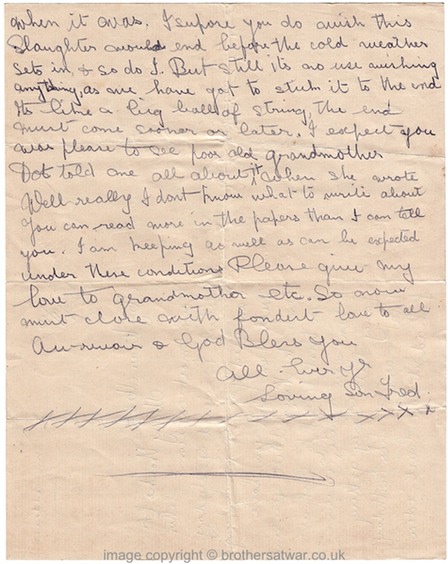 when it was. I supose you do wish this
Slaughter would end before the cold weather
sets in, & so do I. But still its no use wishing
anything, as we have got to stick it to the end
Its like a big ball of string, the end
must come sooner or later. I expect you
was please to see poor old grandmother
Dot told me all about it when she wrote
Well really I dont know what to write about
you can read more in the papers than I can tell
you. I am keeping as well as can be expected
under these conditions Please give my
love to grandmother etc. So now
must close with fondest love to all
Au-revoir & God Bless you
all Ever Yr
Loving Son Fred.
image copyright © brothersatwar.co.uk